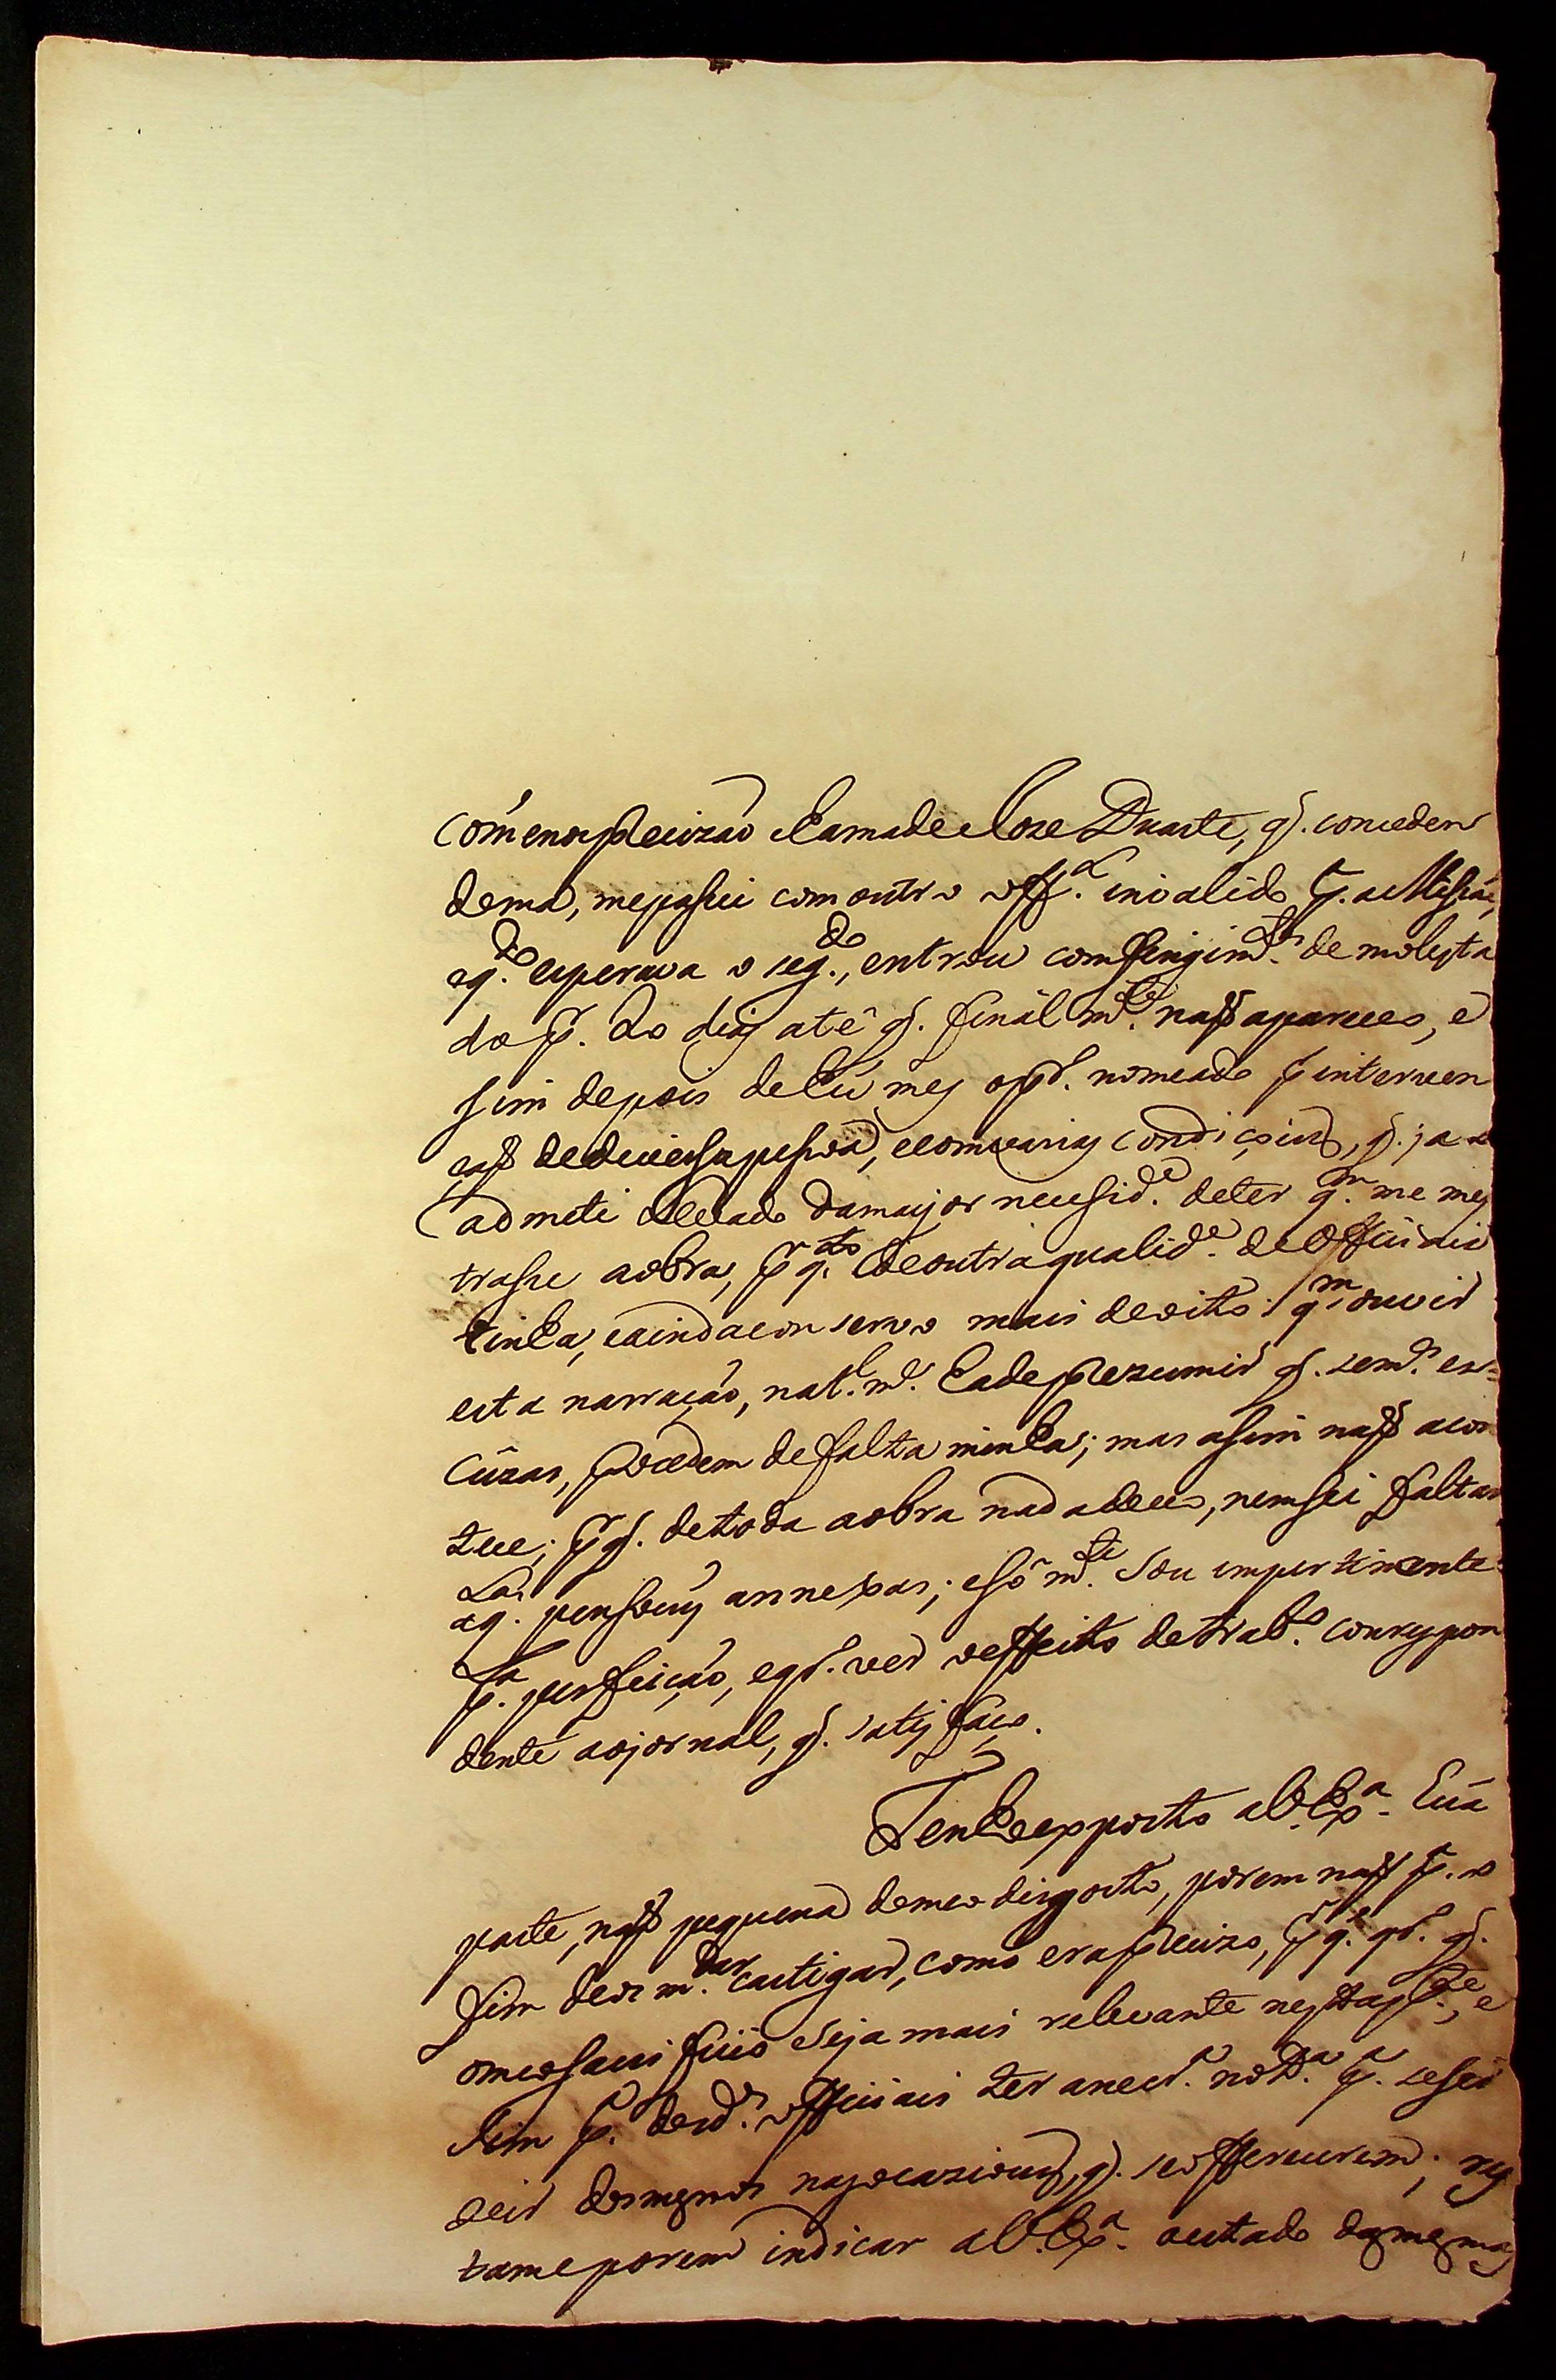 com menor precizaõ chamado Joze Duarte, q̃. conceden
dema, me passei com outro off.al invalido p.a a Missaõ,
e q.do esperava o seg.do, entrou com fingim.tos de molesta
do p.r do dias até q̃. final m.te naõ apareceo, e
sim depois de hũ mes o p.r nomeado p.r interven
çaõ de diversa pessoa, e com varias condiçoins, q̃. ja
admeti levado da mayor necessid.e de ter q.m me mes
trasse a obra, p.r q.to de outra qualid.e de Officiais
tinha, e ainda conservo mais de oito: q.m ouvir
esta narraçaõ, nat.l m.e ha de prezumir q̃. sem.es es-
cuzas, procedem de falta minha; mas assim naõ acon
tece; p.r q̃. de toda a obra nada devo, nem sei faltar
aq.las pensoens annexas; e só m.te sou impertinente
p.la perfeiçaõ, e q̃.r ver o effeito de trab.o correspon
dente ao jornal, q̃. satisfaço.
Tenho exposto a V. Ex.a hũa
parte, naõ pequena de meo disgosto, porem naõ p.a o
fim de os m.dar castigar, como era precizo, p.r q.e q̃.r q̃.
o meo sacrificio seja mais relevante nesta p.te, e
sim p.a de d.os officiais ter a nec.ra not.a p.a se ser
vir dos mesmos nas ocazioens, q̃. se offerecerem; res
tame porem indicar a V. Ex.a o estado da mesma